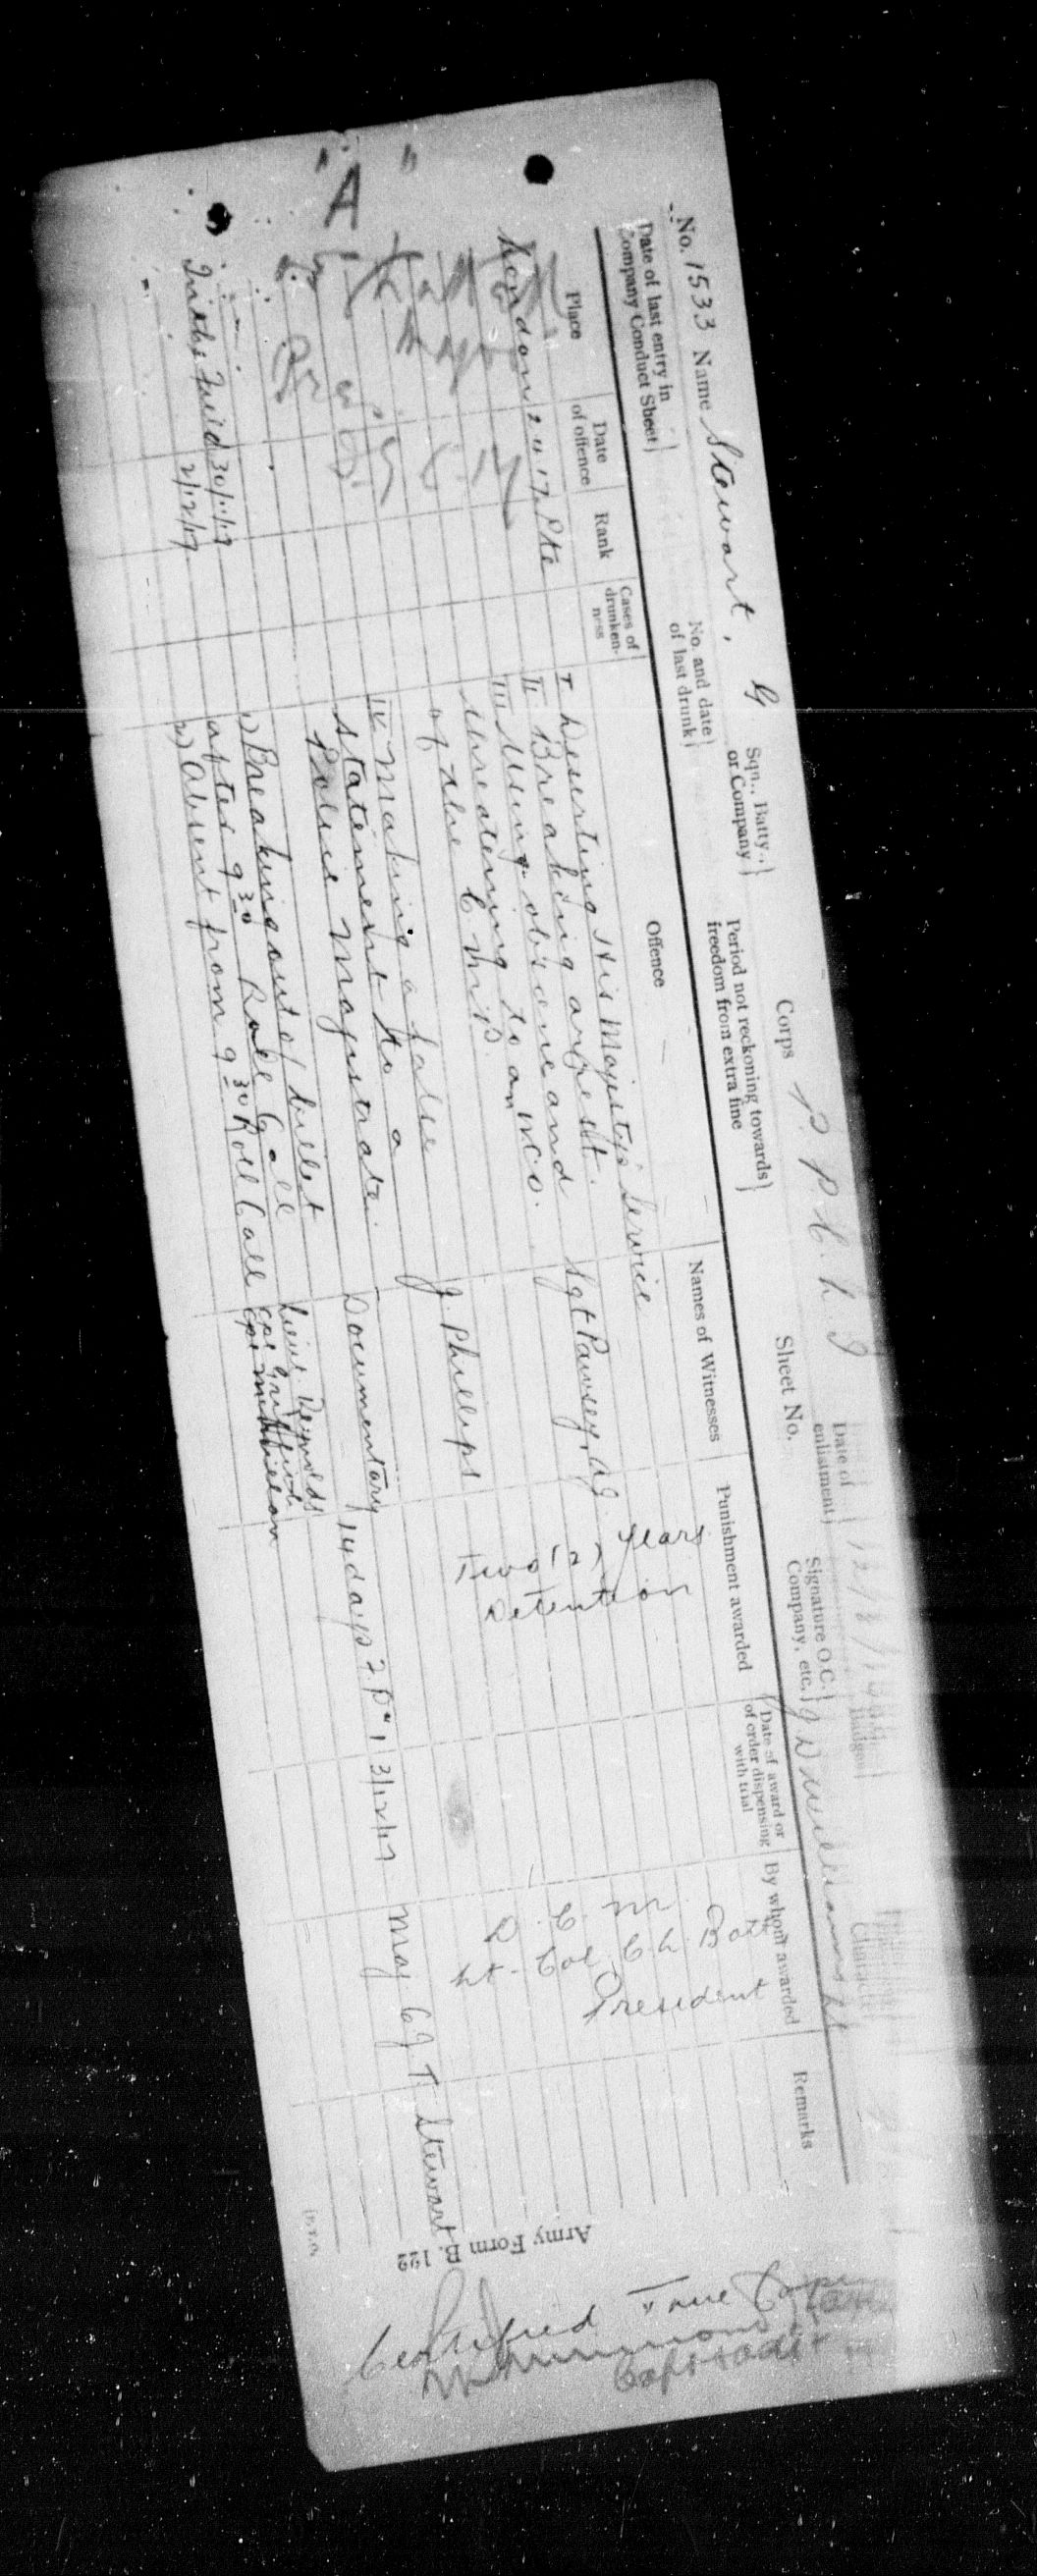 Army Form B. 122
"A"
No. 1533 Name Stewart, G Sqn., Batty., or Company Corps P. P. C. L. I Date of enlistment
Date of last entry in Company Conduct Sheet
No. and date of last drunk
Period not reckoning towards freedom from extra fine
Sheet No.
Signature O.C. Company, etc.
Place
Date of offence
Rank
Cases of drunkenness
Offence
Names of Witnesses
Punishment awarded
Date of award or of order dispensing with trial
By whom awarded
Remarks
London 2 4 17 Pte
I Deserting His Majesty's Service
II Breaking arrest.
III Using obscene and
threatening to an NCO.
of the C M P.
IV Making a false
statement to a
Police Magistrate.
Sgt Pawsey, A J
J. Phillips
Documentary
Two (2) years
Detention
D. C. M
Lt-Col. C. L. Bott
President
Field 30/11/17
2/12/17
1) Breaking out of billet
after 9 30 Roll Call
2) Absent from 9 30 Roll Call
Lieut. Reynolds
Cpl Griffiths
14 days F P No 1
3/12/17
Maj. C J T. Stewart
Certified True Copy
Capt